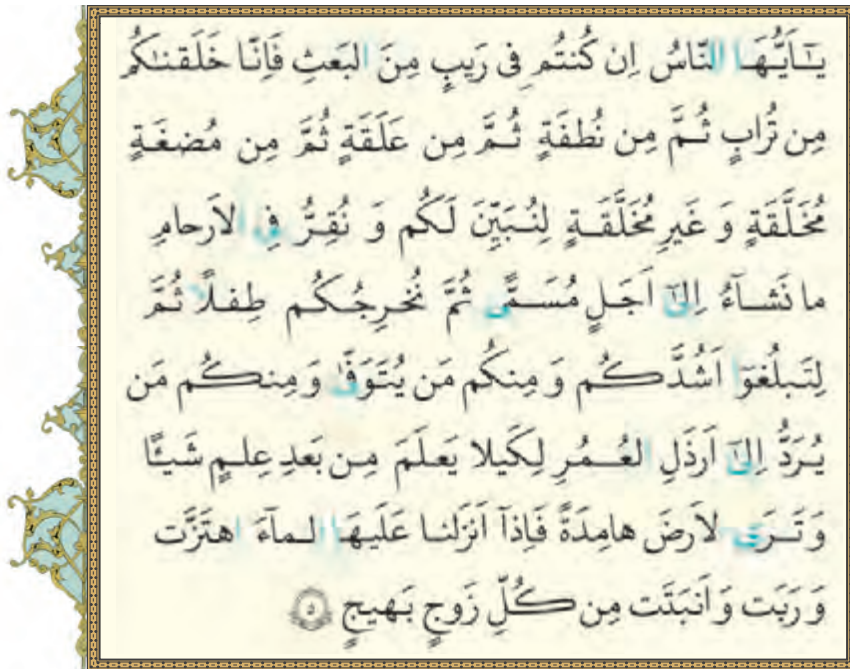 يٰٓاَيُّهَا النّاسُ اِن كُنتُم فى رَيبٍ مِنَ البَعثِ فَاِنّا خَلَقنٰكُم
مِن تُرابٍ ثُمَّ مِن نُطفَةٍ ثُمَّ مِن عَلَقَةٍ ثُمَّ مِن مُضغَةٍ
مُخَلَّقَةٍ وَ غَيرِ مُخَلَّقَةٍ لِنُبَيِّنَ لَكُم وَ نُقِرُّ فِى الاَرحامِ
ما نَشآءُ اِلىٰٓ اَجَلٍ مُسَمًّى ثُمَّ نُخرِجُكُم طِفلًا ثُمَّ
لِتَبلُغوٓا اَشُدَّكُم وَ مِنكُم مَن يُتَوَفّىٰ وَ مِنكُم مَن
يُرَدُّ اِلىٰٓ اَرذَلِ العُمُرِ لِكَيلا يَعلَمَ مِن بَعدِ عِلمٍ شَيـًٔا
وَ تَرَى الاَرضَ هامِدَةً فَاِذآ اَنزَلنا عَلَيهَا الـمآءَ اهتَزَّت
وَ رَبَت وَ اَنبَتَت مِن كُلِّ زَوجٍ بَهيجٍ ٥